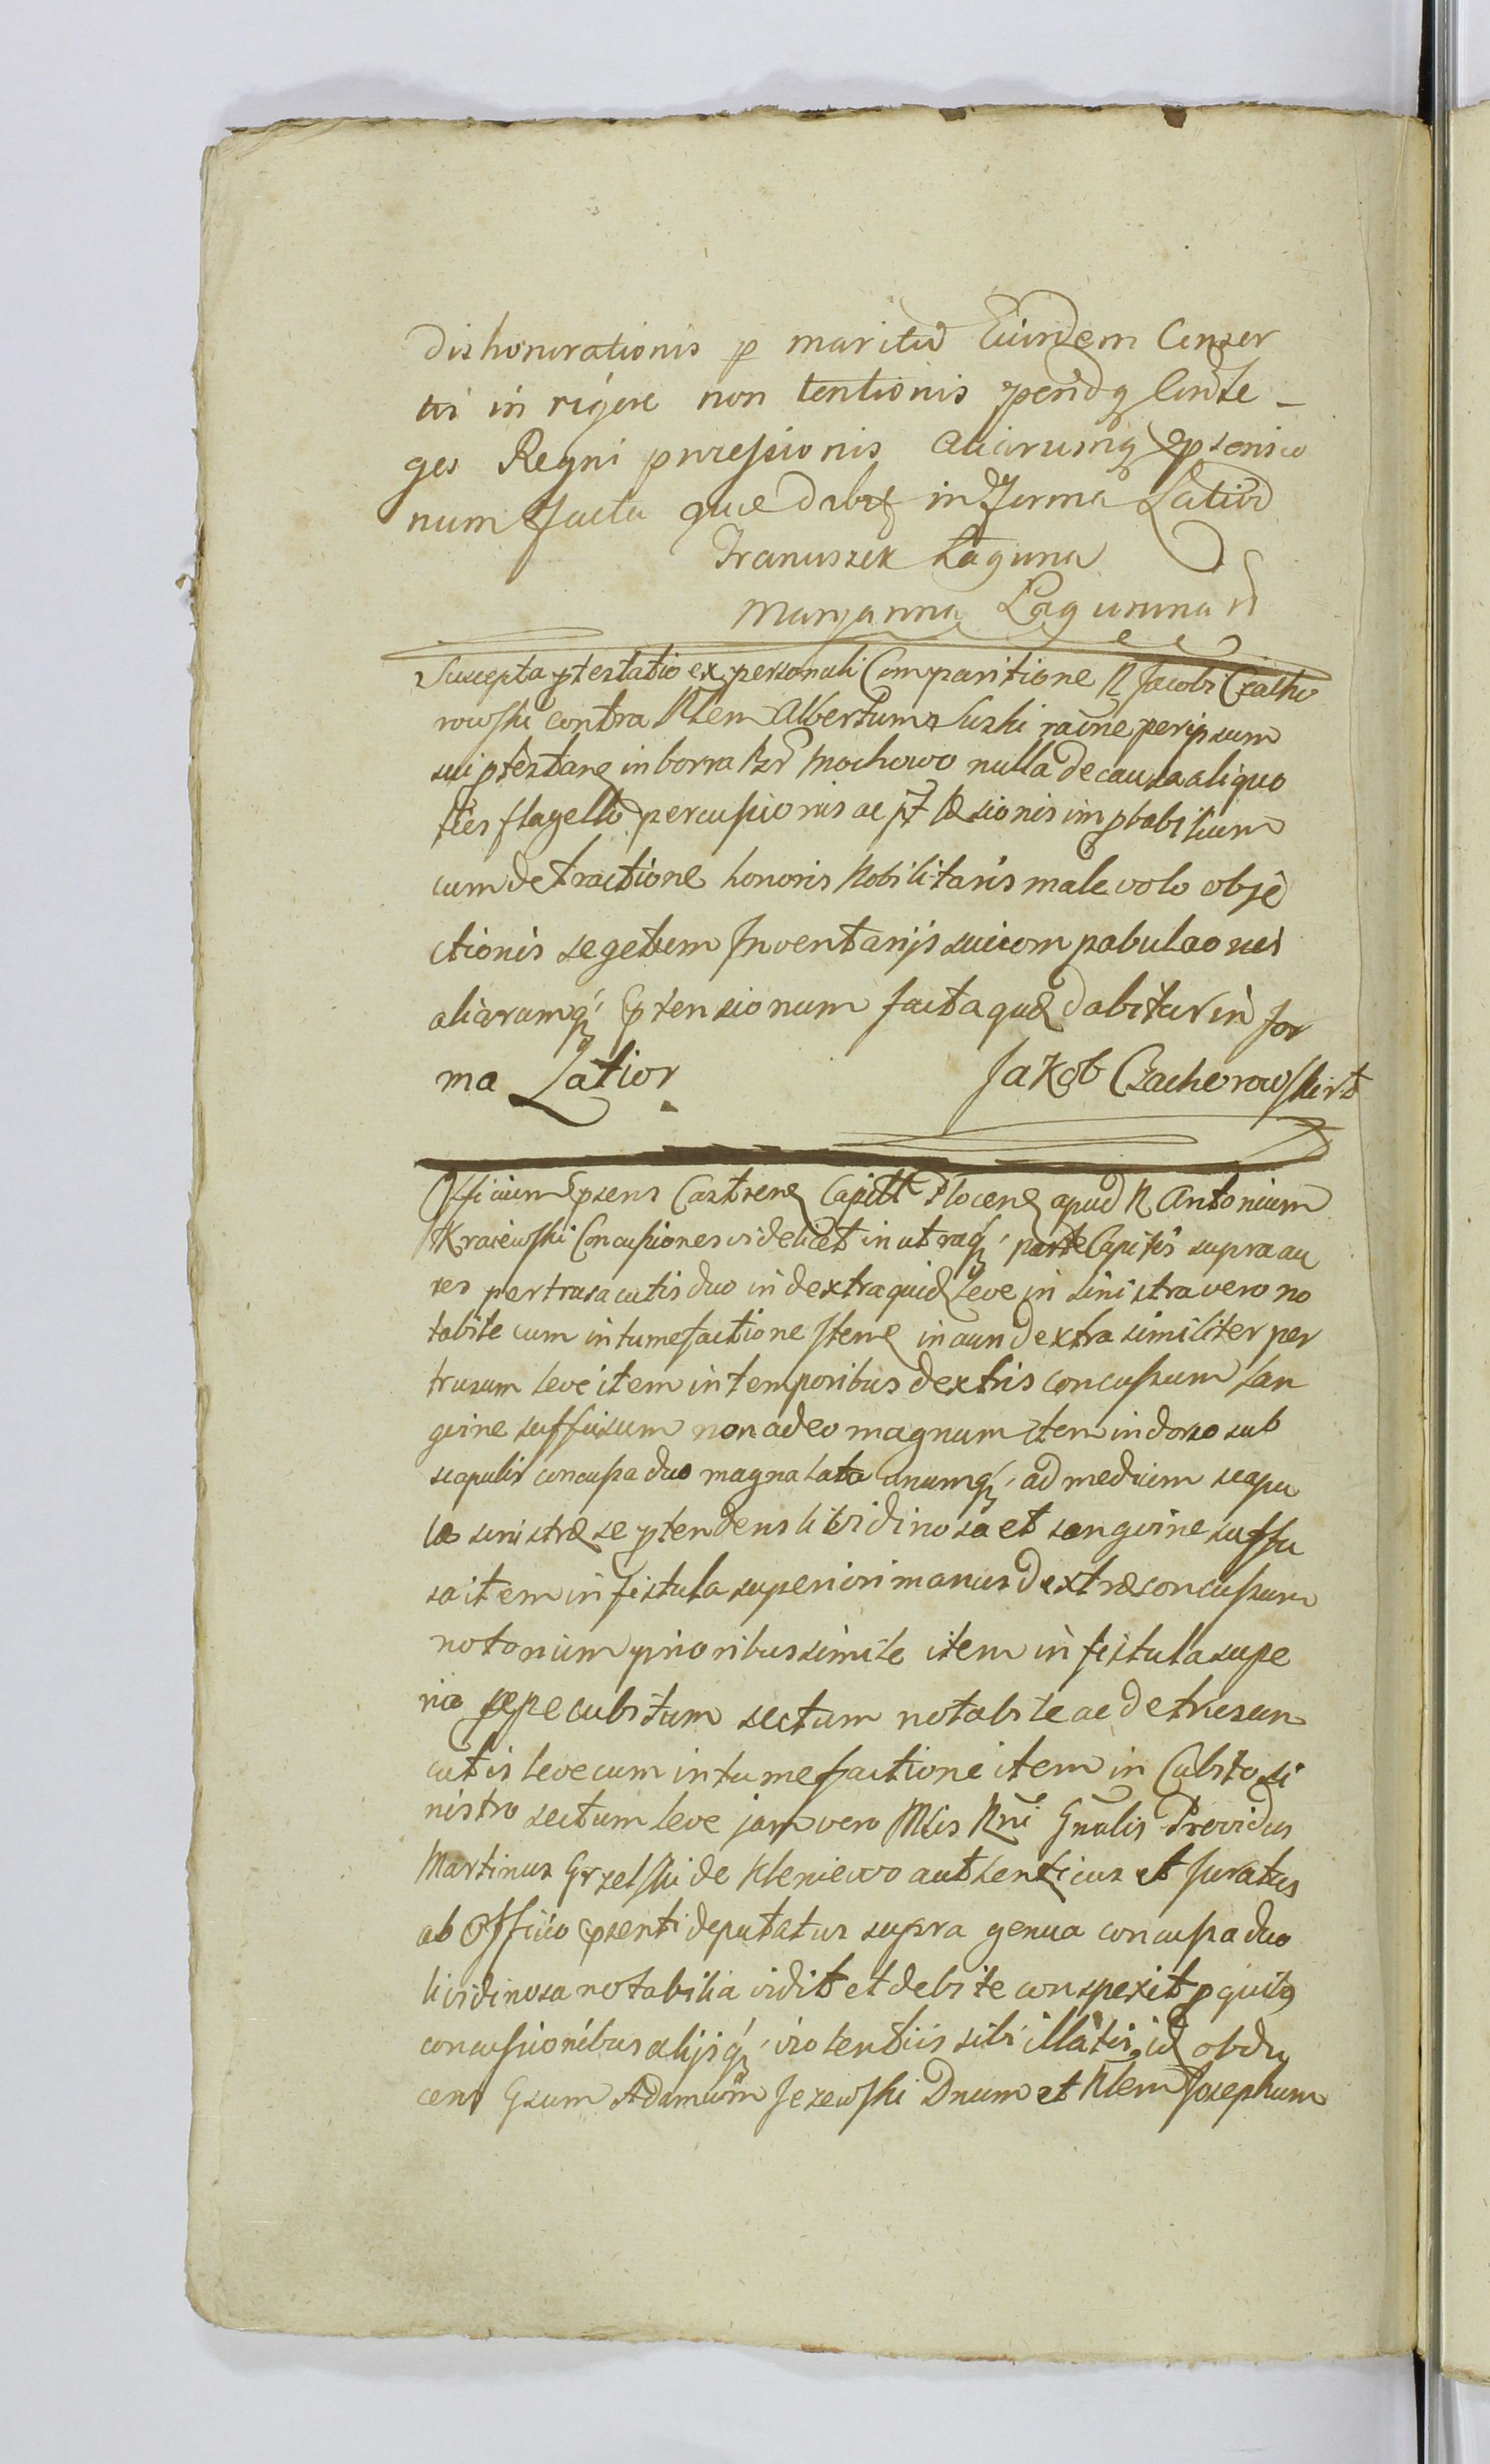 dishonorationis p maritu Eiusdem Consor
tis in rigore non tentionis Contra Le_
ges Regni pressionis aliarumq Eptensio
num facta quae dabit in forma Latiori
Franciszek Laguna
Maryanna Lagunina
Suscepta ptestatio ex personali Comparitione N Jacobi Czacho
rowski contra Nlem Albertum Suski raone per ipsum
sui ptestans in borra Mochowo nulla de causa aliquo
ties flagello percussionis ac laesionis improbabilium
cum detractione honoris Nobilitaris malevolo obje
ctionis segetum Inventarijs suis compabulaonis
aliarumq Eptensionum facta quae dabitur in for
ma Latior Jakob Czachorowski
Officium Epsens Castrens Capitt Plocens apud N Antonium
Kraiewski Concussiones videlicet in utraq parte Capitis supra au
res pertrusa cutis duo in dextra quid leve in sinistra vero no
tabile cum intumefactione Item in auri dextra similiter per
trusum leve item in temporibus dextris concussum san
guine suffusum non adeo magnum item in dorso sub
scapulis concussa duo magna lata unumq ad medium scapu
lae sinistrae se ptendens lividinosa et sanguine suffu
sa item in fistula superiori manus dextrae concussum
notorium prioribus simile item in fistula supe
ria sepe cubitum sectum notabile ac detrusum
cutis leve cum intumefactione item in Cubito si
nistro sectum leve jam vero Mlis Rni Gnalis Providus
Martinus Grzelski de Kleniewo authenticus et Juratus
ab Officio Epsenti deputatus supra genua concussa duo
lividinosa notabilia vidit et debite conspexit p quibus
concussionibus alijsq violentiis sibi illatis id obdu
cens Gsum Adamum Jezewski Dnum et Nlem Josephum